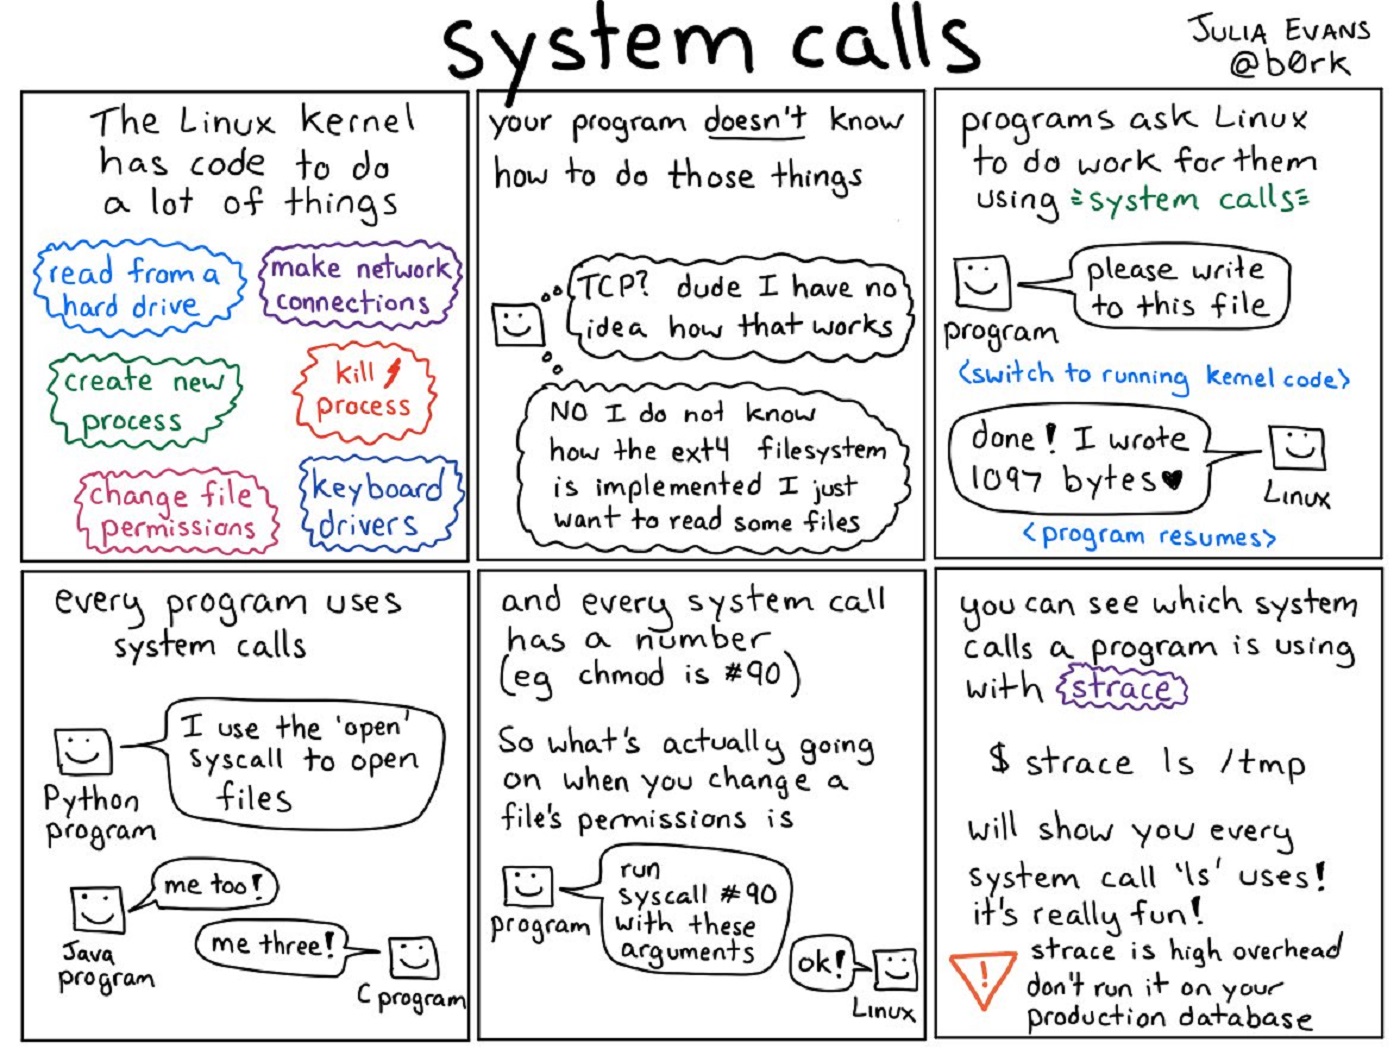 system calls
JULIA EVANS
@b0rk
The Linux kernel
has code to do
a lot of things
read from a
hard drive
make network
connections
create new
process
kill
process
change file
permissions
keyboard
drivers
your program doesn't know
how to do those things
TCP? dude I have no
idea how that works
NO I do not know
how the ext4 filesystem
is implemented I just
want to read some files
programs ask Linux
to do work for them
using system calls
please write
to this file
program
<switch to running kernel code>
done! I wrote
1097 bytes♥
Linux
<program resumes>
every program uses
system calls
I use the 'open'
syscall to open
files
Python
program
me too!
Java
program
me three!
C program
and every system call
has a number
(eg chmod is #90)
So what's actually going
on when you change a
file's permissions is
run
syscall #90
with these
arguments
program
ok!
Linux
you can see which system
calls a program is using
with strace
$ strace ls /tmp
will show you every
system call 'ls' uses!
it's really fun!
!
strace is high overhead
don't run it on your
production database